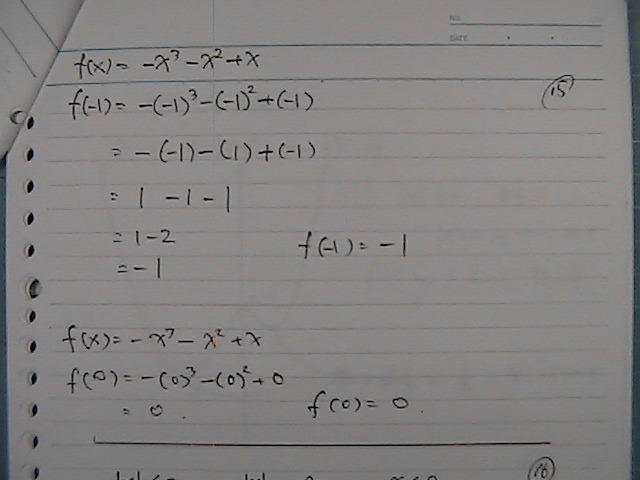 NO.
DATE . .
f(x) = -x³ - x² + x
f(-1) = -(-1)³ - (-1)² + (-1) 15
= -(-1) - (1) + (-1)
= 1 - 1 - 1
= 1 - 2 f(-1) = -1
= -1
f(x) = -x³ - x² + x
f(0) = -(0)³ - (0)² + 0
= 0 . f(0) = 0 .
16